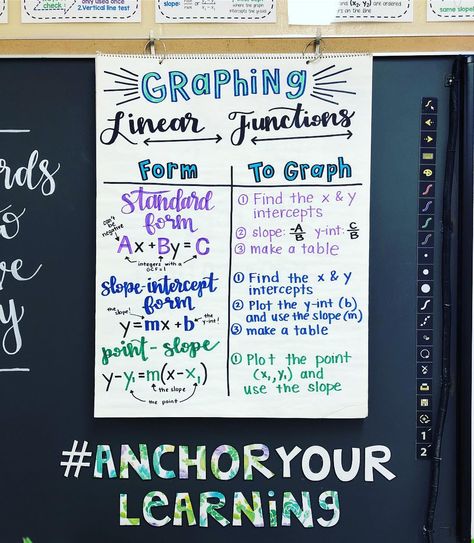 check
used only once
2. Vertical line test
slope:
intercepts
GRAPHING
Linear Functions
Form
To Graph
standard form
can't be negative!
Ax + By = C
integers with a GCF=1
① Find the x & y intercepts
② slope: -A/B y-int: C/B
③ make a table
slope-intercept form
the slope!
y = mx + b
the y-int!
① Find the x & y intercepts
② Plot the y-int (b) and use the slope (m)
③ make a table
point-slope
y-y₁=m(x-x₁)
the slope
the point
① Plot the point (x₁,y₁) and use the slope
#ANCHORYOUR
LEARNING
1
2